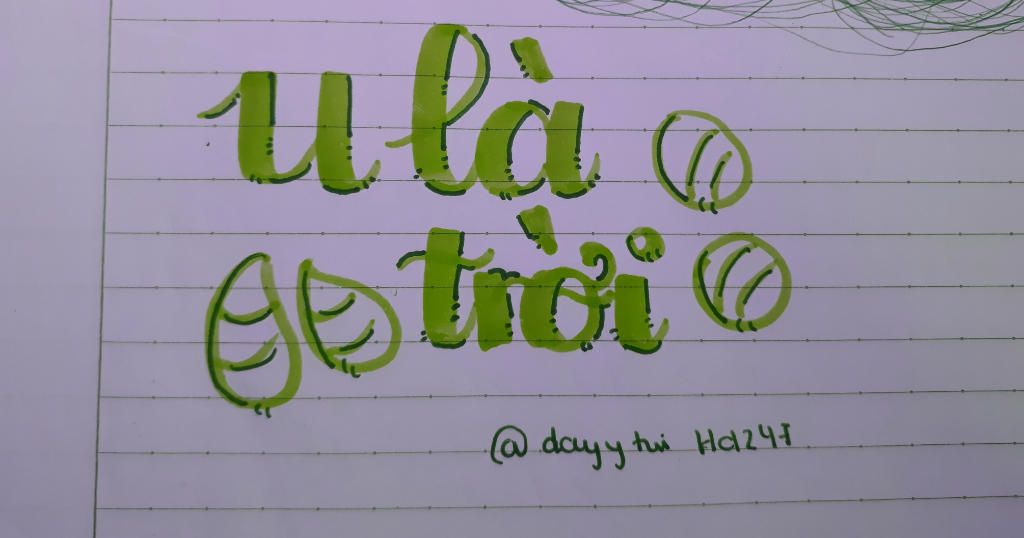 u là
trời
@ dayy tui Hd247